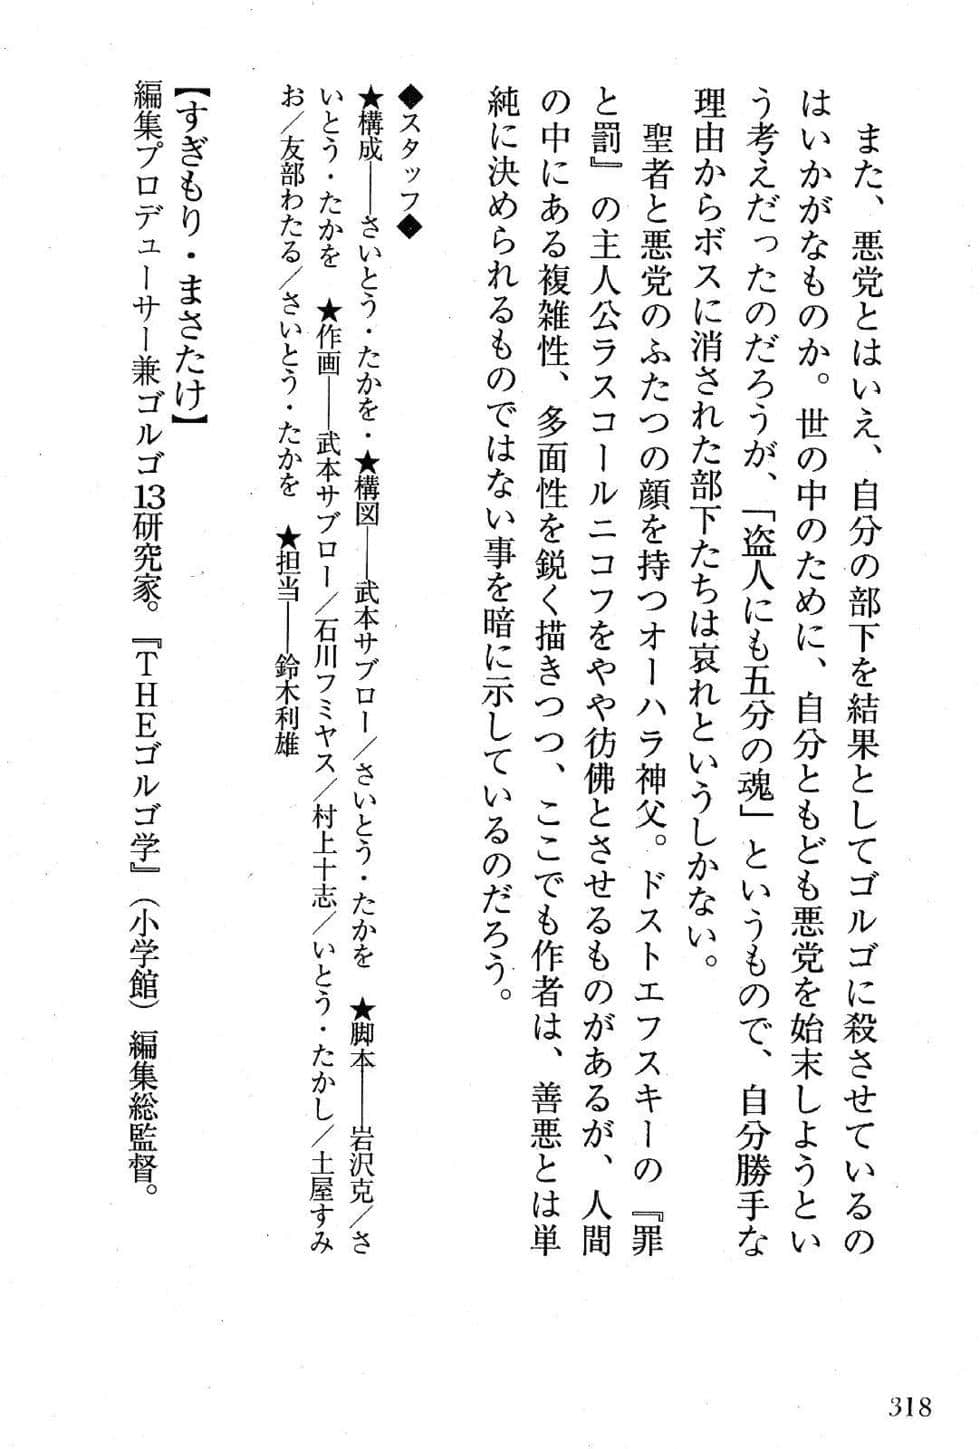 また、悪党とはいえ、自分の部下を結果としてゴルゴに殺させているの
はいかがなものか。世の中のために、自分ともども悪党を始末しようとい
う考えだったのだろうが、「盗人にも五分の魂」というもので、自分勝手な
理由からボスに消された部下たちは哀れというしかない。
聖者と悪党のふたつの顔を持つオーハラ神父。ドストエフスキーの『罪
と罰』の主人公ラスコールニコフをやや彷彿とさせるものがあるが、人間
の中にある複雑性、多面性を鋭く描きつつ、ここでも作者は、善悪とは単
純に決められるものではない事を暗に示しているのだろう。
◆スタッフ◆
★構成――さいとう・たかを・★構図――武本サブロー/さいとう・たかを ★脚本――岩沢克/さ
いとう・たかを ★作画――武本サブロー/石川フミヤス/村上十志/いとう・たかし/土屋すみ
お/友部わたる/さいとう・たかを ★担当――鈴木利雄
【すぎもり・まさたけ】
編集プロデューサー兼ゴルゴ13研究家。『THEゴルゴ学』(小学館)編集総監督。
318